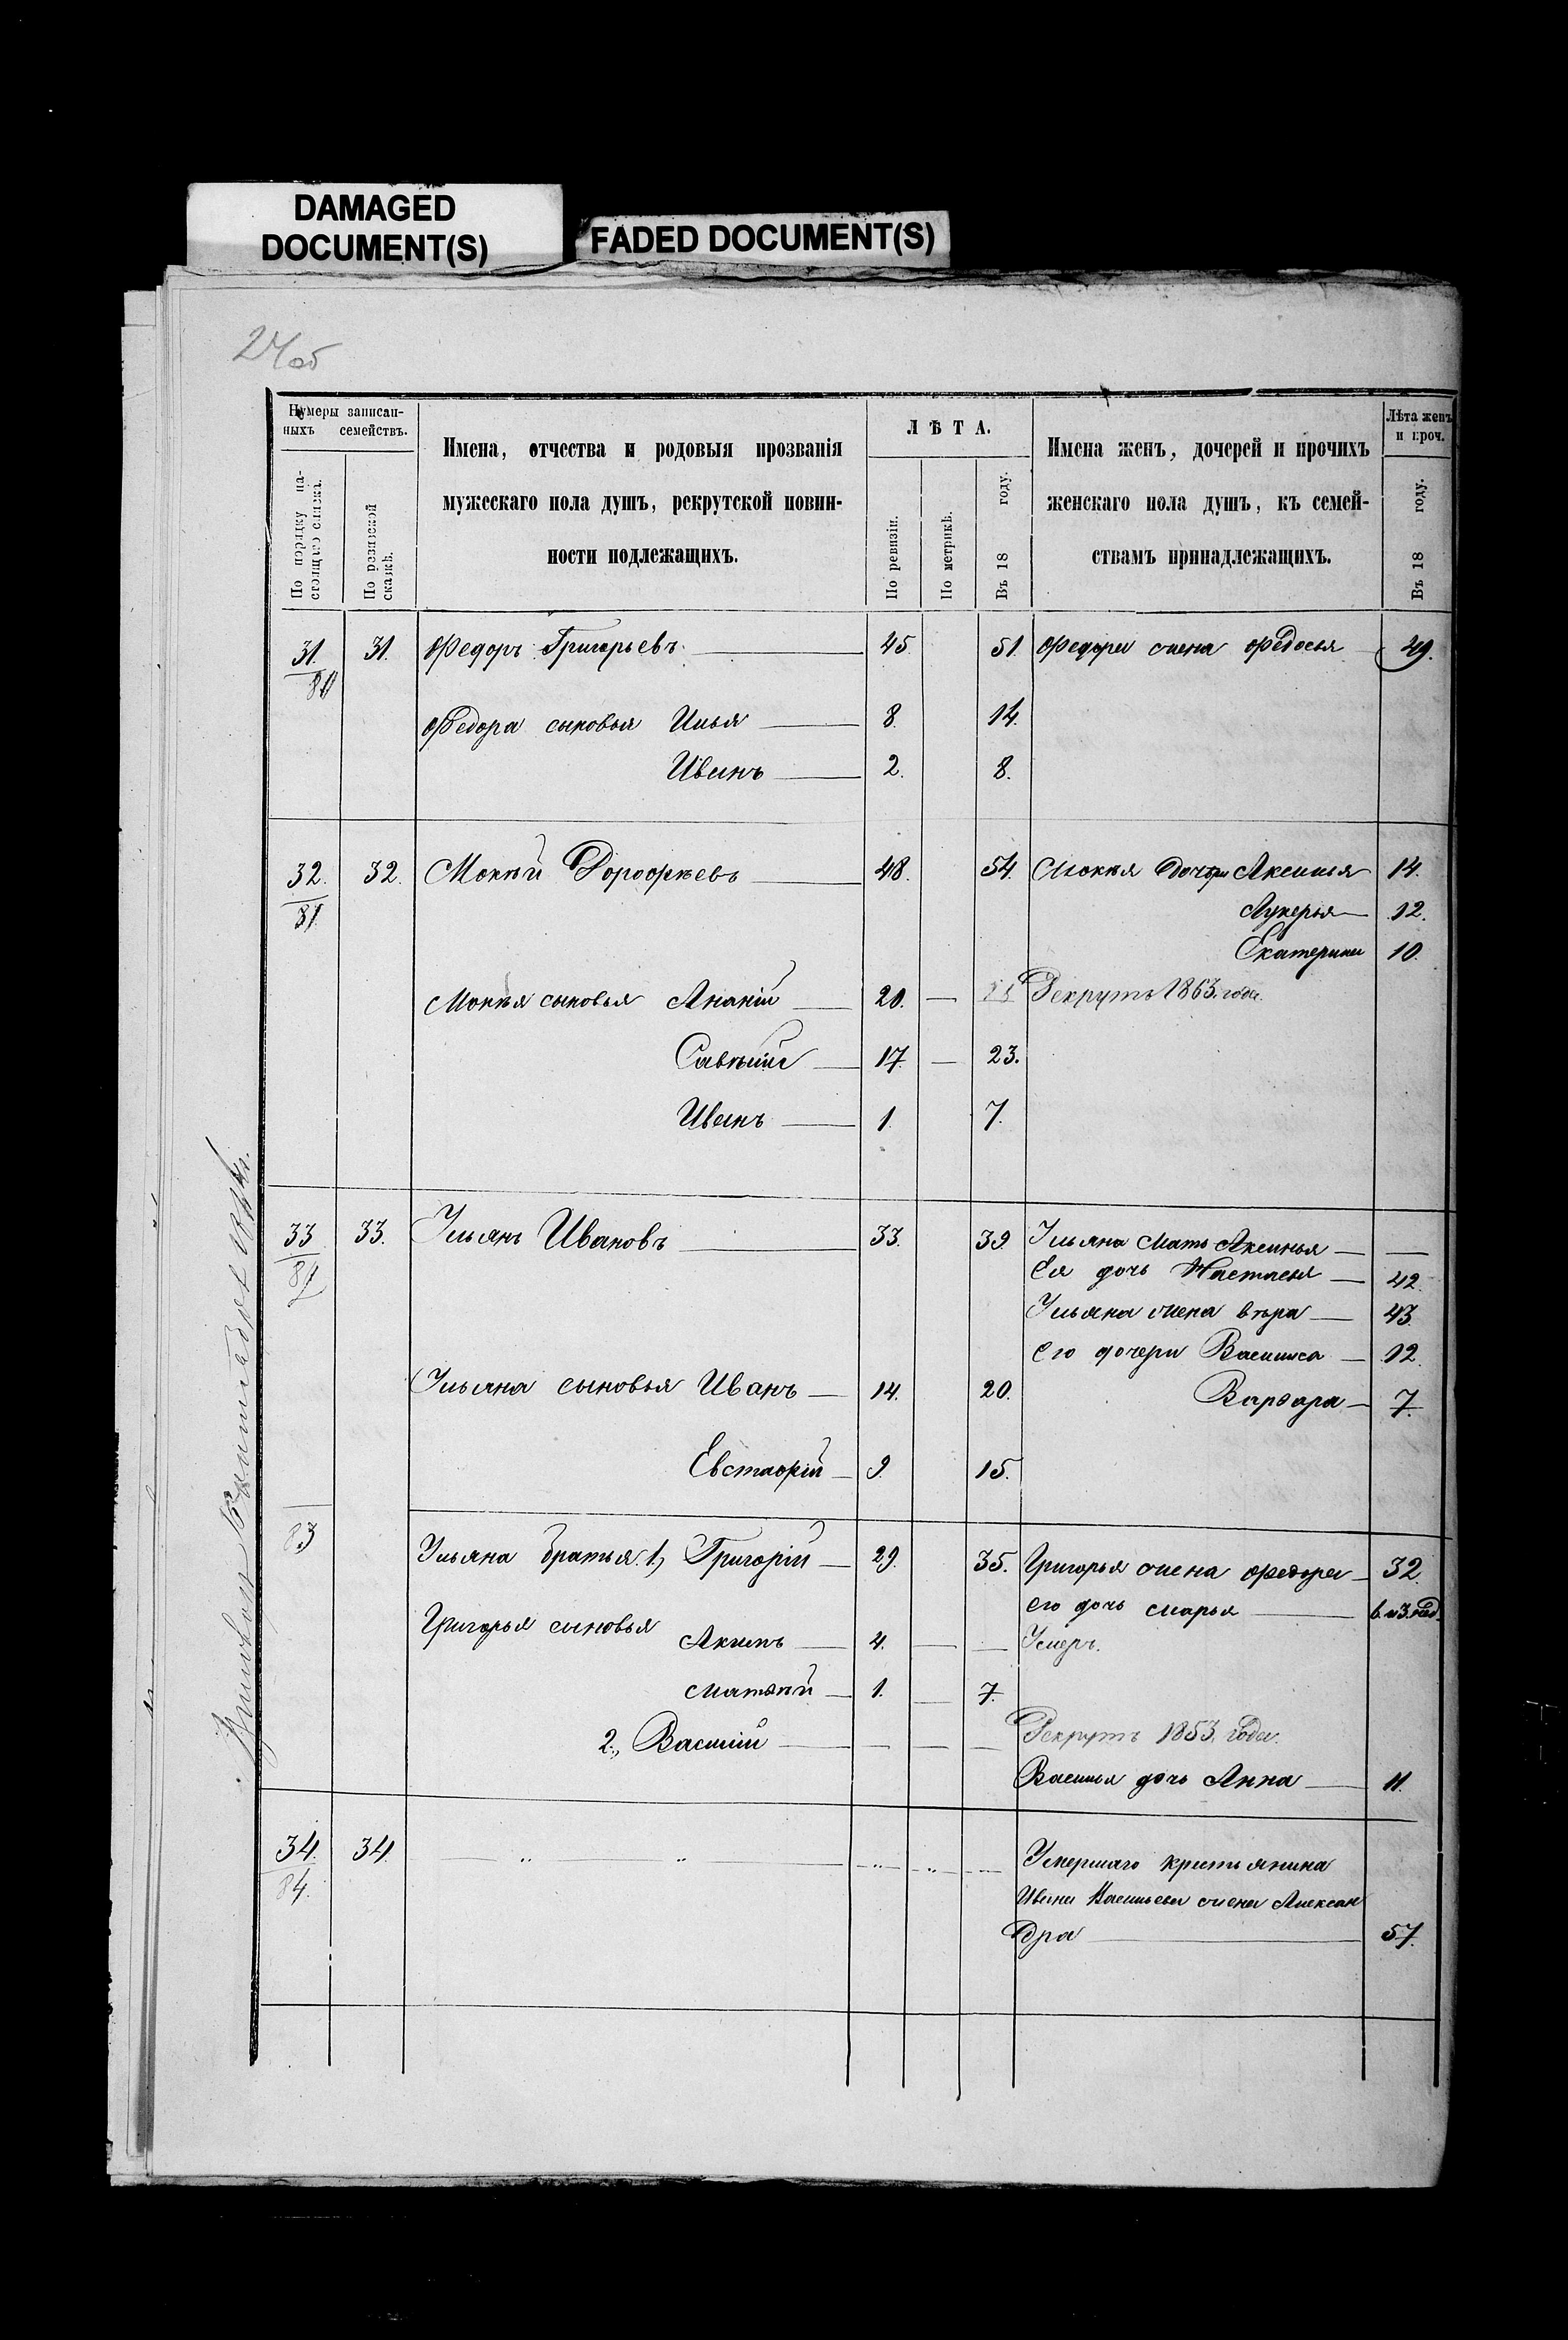 DAMAGED
DOCUMENT(S)
FADED DOCUMENT(S)
24об
Нумеры записан-
ныхъ семействъ.
По порядку на-
стоящаго списка.
По ревизской
сказкѣ.
Имена, отчества и родовыя прозванія
мужескаго пола душъ, рекрутской повин-
ности подлежащихъ.
ЛѢТА.
По ревизіи.
По метрикѣ.
Въ 18 году.
Имена женъ, дочерей и прочихъ
женскаго пола душъ, къ семей-
ствамъ принадлежащихъ.
Лѣта женъ
и проч.
Въ 18 году.
31. 31. Федоръ Григорьевъ 45. 51. Федора жена Федосья 49.
80
Федора сыновья Илья 8. 14.
Иванъ 2. 8.
32. 32. Мокѣй Дорофѣевъ 48. 54. Мокѣя дочери Аксинья 14.
81. Лукерья 12.
Екатерина 10.
Мокѣя сыновья Ананій 20. — Рекрутъ 1863 года.
Савелій 17. — 23.
Иванъ 1. 7.
33 33. Ульянъ Ивановъ 33. 39. Ульяна мать Аксинья — —
82 Ея дочь Настасья — 42.
Ульяна жена Вѣра — 43.
Его дочери Василиса — 12.
Ульяна сыновья Иванъ — 14. 20. Варвара — 7.
Евстафій — 9. 15.
83 Ульяна братья 1, Григорій — 29. 35. Григорья жена Федора — 32.
его дочь Марья
Григорья сыновья Акимъ — 4. — — Умеръ.
Матвѣй — 1. — 7.
2., Василій — — — — Рекрутъ 1853 года.
Василья дочь Анна — 11.
34. 34. — „ „ — „ — „ — Умершаго крестьянина
84. Ивана Васильева жена Алексан
дра — 57.